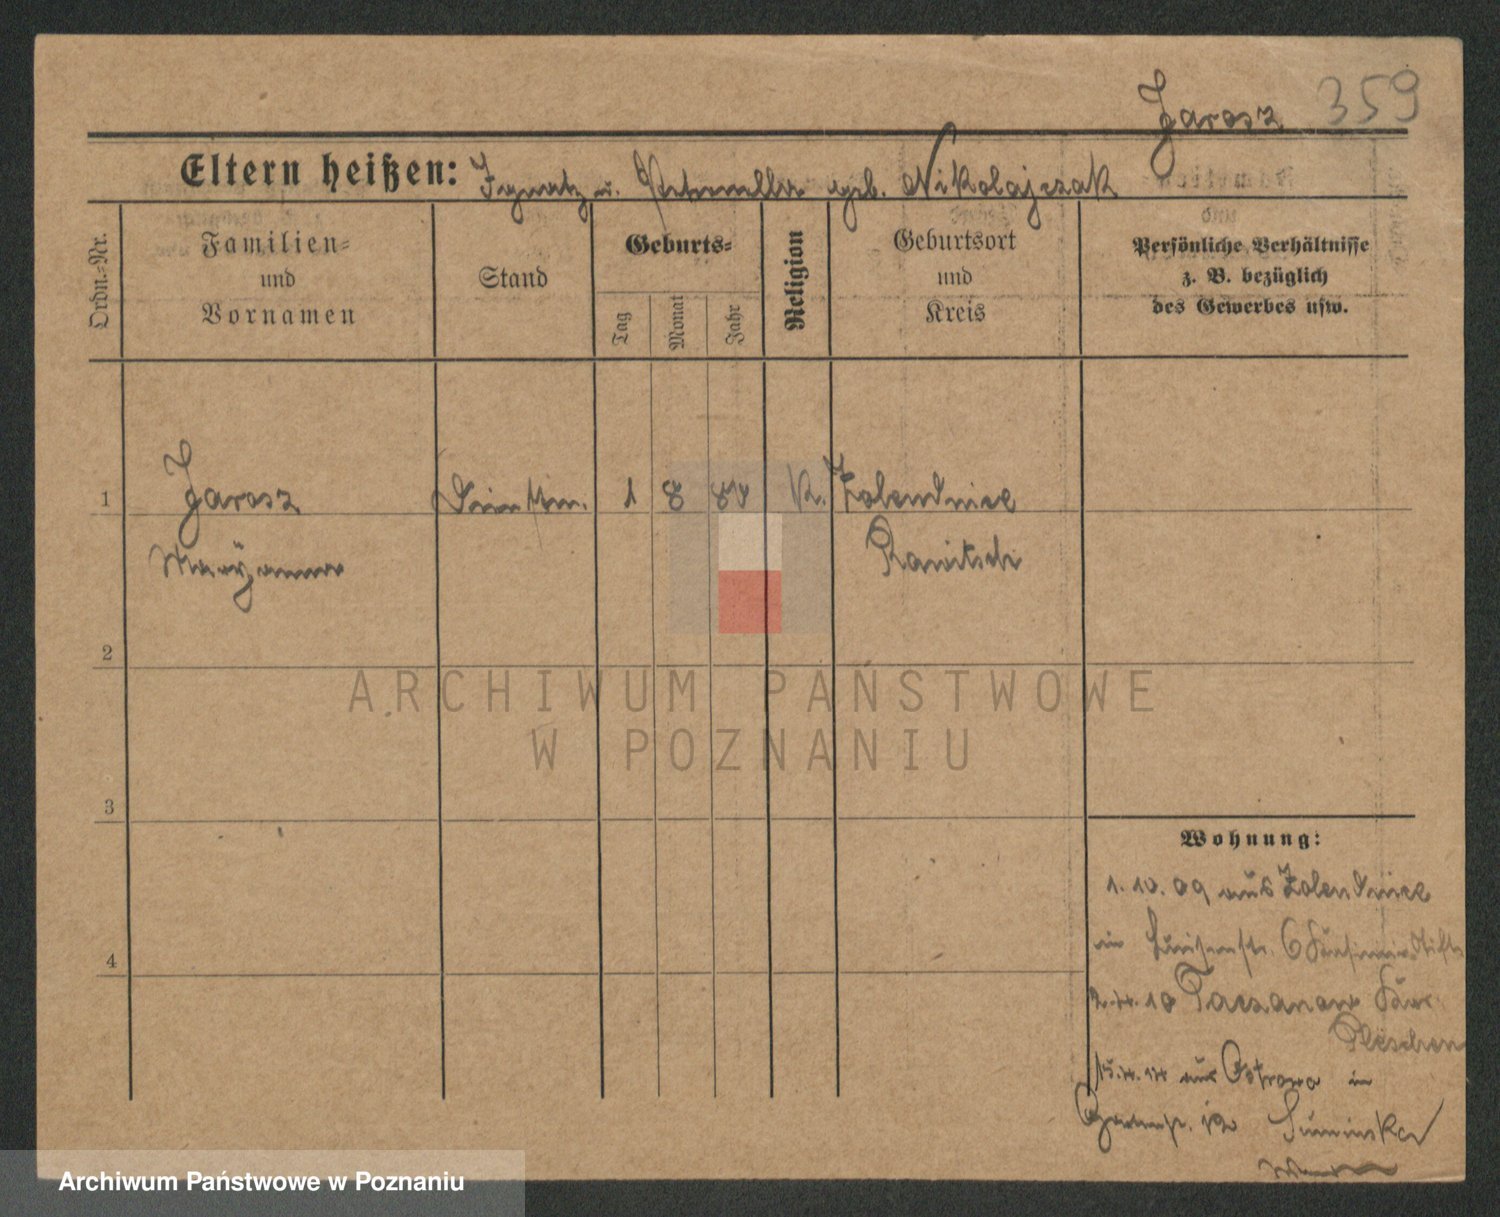 Jarosz 359
Eltern heißen: Ignatz u. Petronella geb. Nikolajczak
Ordn.-Nr.
Familien-
und
Vornamen
Stand
Geburts-
Tag
Monat
Jahr
Religion
Geburtsort
und
Kreis
Persönliche Verhältnisse
z. B. bezüglich
des Gewerbes usw.
1 Jarosz 1 8 K. Zolendnice
Maryanna Rawitsch
2
3
4
Wohnung:
1. 10. 09 aus Zolendnice
in Luisenstr. 6
10 Taczanow
Pleschen
aus Ostrowo in
Gartenstr. Suminska
ARCHIWUM PAŃSTWOWE
W POZNANIU
Archiwum Państwowe w Poznaniu